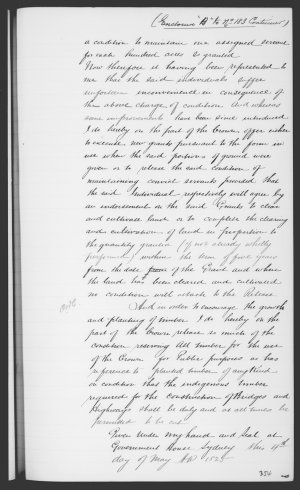 (Enclosure "A" to No 183 Continued)
a condition to maintain one assigned servant
for each hundred acres so granted.
Now therefore it having been represented to
me that the said individuals suffer
unforeseen inconvenience in consequence of
the above charge of condition. And whereas
some improvements have been since introduced
I do hereby on the part of the Crown offer either
to execute new grants pursuant to the form in
use when the said portions of ground were
given or to release the said condition of
maintaining convict servants provided that
the said Individual respectively will agree by
an endorsement on the said Grants to clear
and cultivate land or to complete the clearing
and cultivation of land in proportion to
the quantity granted (if not already wholly
performed) within the term of five years
from the date of the Grant and where
the land has been cleared and cultivated
no condition will attach to the Release
And in order to encourage the growth
and planting of timber I do hereby on the
part of the Crown release so much of the
condition reserving all timber for the use
of the Crown for Public purposes as has
reference to planted timber of any kind
on condition that the indigenous timber
required for the construction of Bridges and
Highways shall be duly and at all times be
permitted to be cut
Given under my hand and Seal at
Government House Sydney this
day of May AD 1825
354